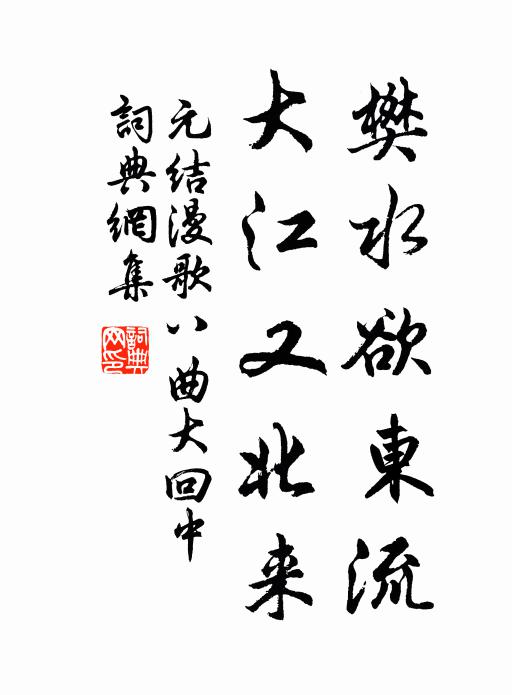 樊水欲東流
大江又北来
元结漫歌八曲大回中
詞典網集
詞典网印